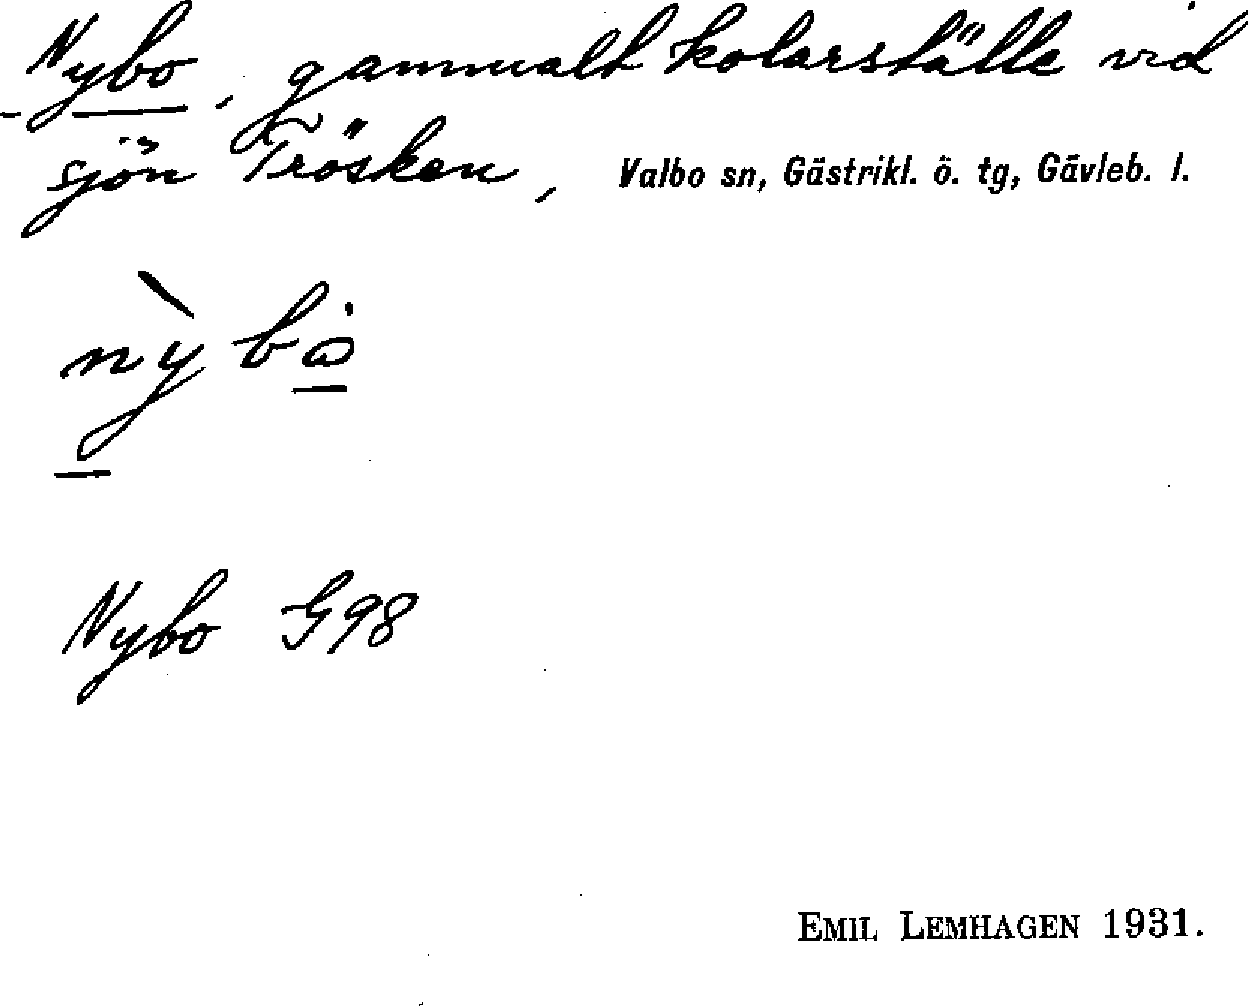 Nybo, gammalt kolarställe vid
sjön Trösken, Valbo sn, Gästrikl. ö. tg, Gävleb. l.
nỳbo
Nybo G98
EMIL LEMHAGEN 1931.